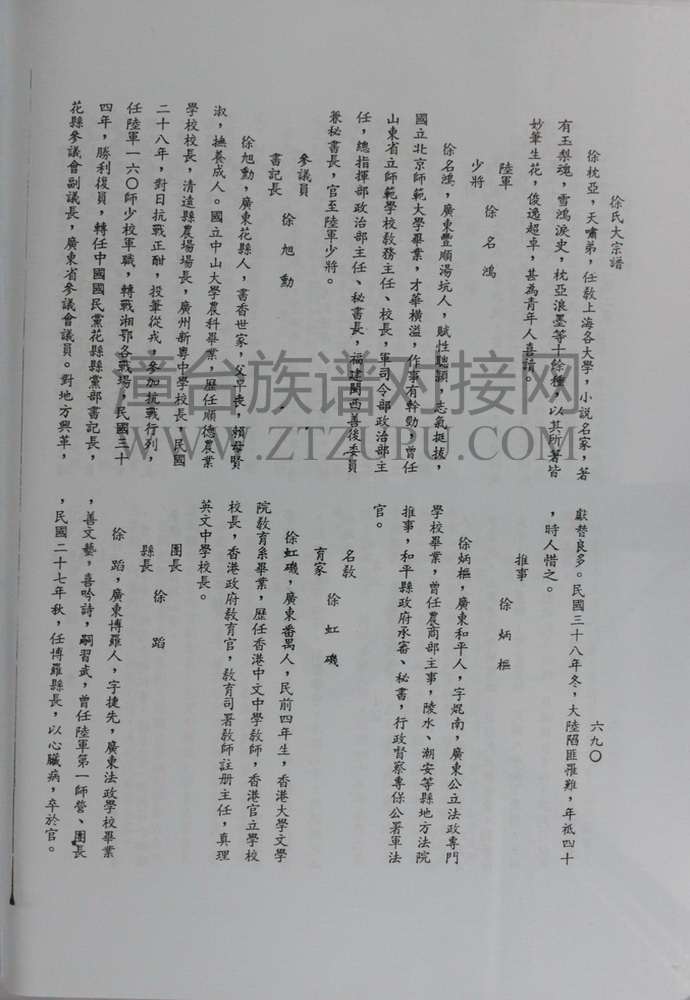 徐氏大宗譜
徐枕亞，天嘯弟，任教上海各大學，小說名家，著
有玉梨魂，雪鴻淚史，枕亞浪墨等十餘種，以其所著皆
妙筆生花，俊逸超卓，甚為青年人喜讀。
陸軍
少將
徐名鴻
徐名鴻，廣東豐順湯坑人，賦性聰穎，志氣挺拔，
國立北京師範大學畢業，才華橫溢，作事有幹勁，曾任
山東省立師範學校教務主任、校長，軍司令部政治部主
任，總指揮部政治部主任、秘書長，福建閩西善後委員
兼秘書長，官至陸軍少將。
參議員
書記長
徐旭勳
徐旭勳，廣東花縣人，書香世家，父早喪，賴母賢
淑，撫養成人。國立中山大學農科畢業，歷任順德農業
學校校長，清遠縣農場場長，廣州新粵中學校長，民國
二十八年，對日抗戰正酣，投筆從戎，參加抗戰行列，
任陸軍一六〇師少校軍職，轉戰湘鄂各戰場，民國三十
四年，勝利復員，轉任中國國民黨花縣縣黨部書記長，
花縣參議會副議長，廣東省參議會議員。對地方興革，
六九〇
獻替良多。民國三十八年冬，大陸陷匪罹難，年祇四十
，時人惜之。
推事
徐炳樞
徐炳樞，廣東和平人，字焜南，廣東公立法政專門
學校畢業，曾任農商部主事，陵水、潮安等縣地方法院
推事，和平縣政府承審、秘書，行政督察專保公署軍法
官。
名教
育家
徐虹磯
徐虹磯，廣東番禺人，民前四年生，香港大學文學
院教育系畢業，歷任香港中文中學教師，香港官立學校
校長，香港政府教育官，教育司署教師註册主任，真理
英文中學校長。
團長
縣長
徐蹈
徐蹈，廣東博羅人，字捷先，廣東法政學校畢業
，善文藝，喜吟詩，嗣習武，曾任陸軍第一師營、團長
，民國二十七年秋，任博羅縣長，以心臟病，卒於官。
漳台族谱对接网
WWW.ZTZUPU.COM